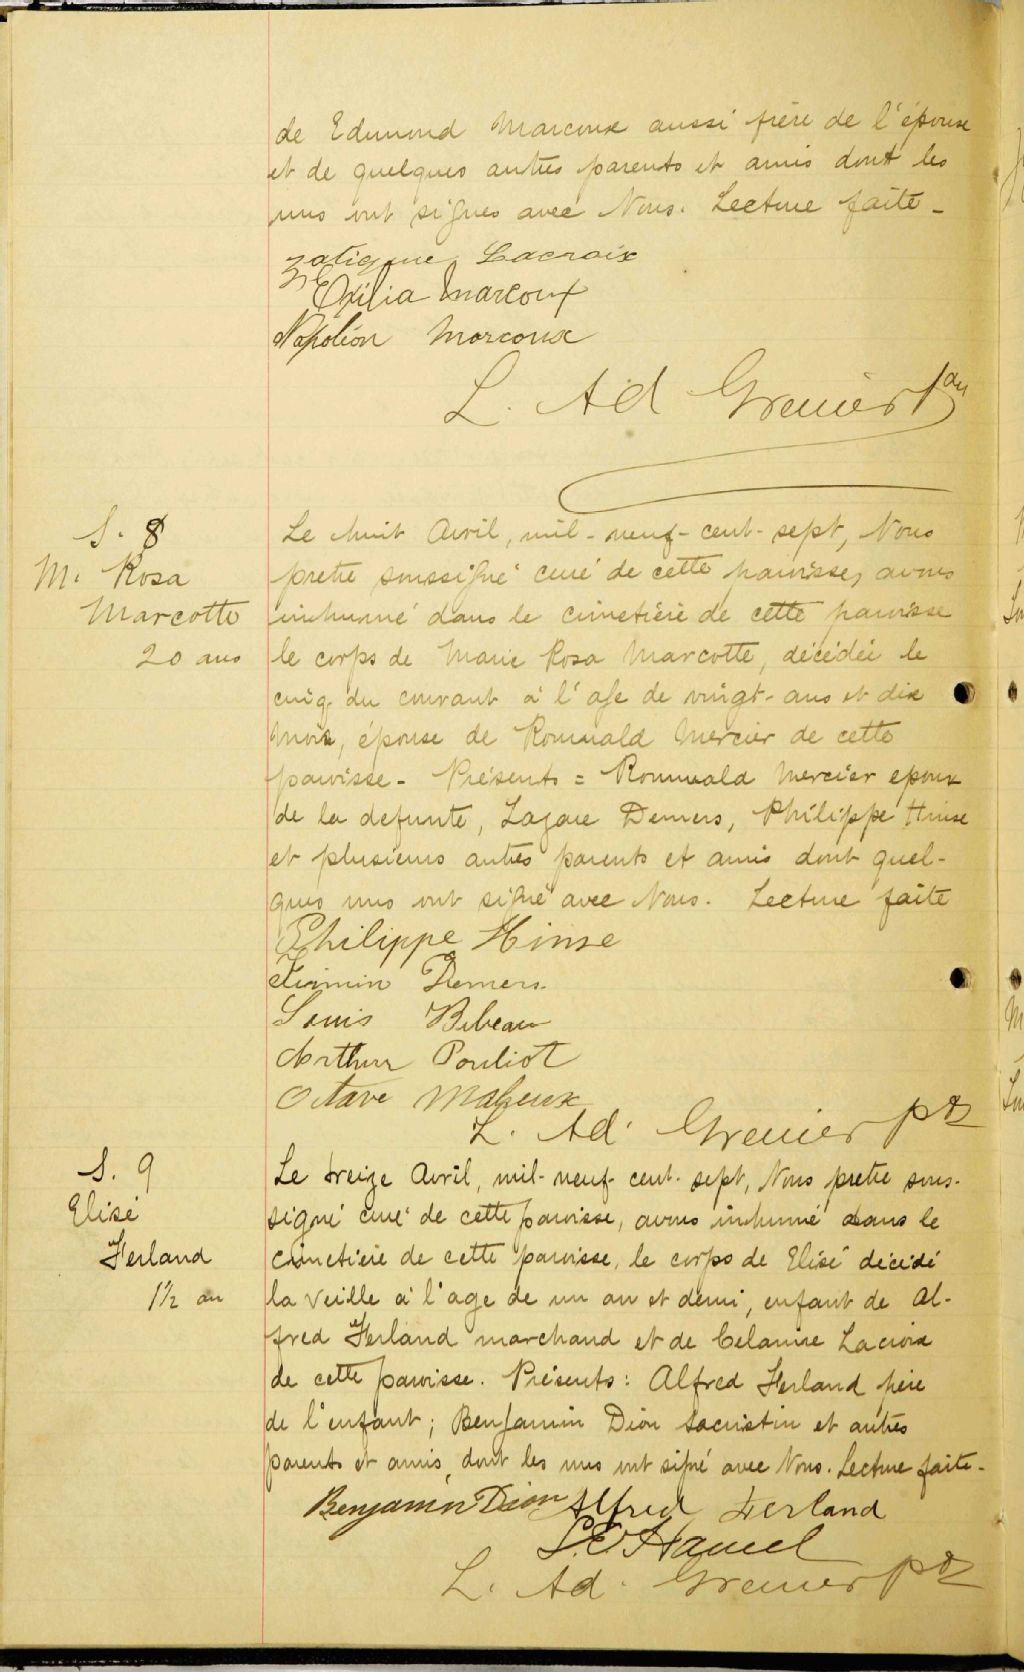 de Edmond Marcoux aussi frère de l'épouse
et de quelques autres parents et amis dont les
uns ont signés avec Nous. Lecture faite -
Lacroix
Exilia Marcoux
Napoléon Marcoux
L. Ad Grenier
S. 8
M. Rosa
Marcotte
20 ans
Le huit Avril, mil-neuf-cent-sept, Nous
pretre soussigné curé de cette paroisse, avons
inhumé dans le cimetière de cette paroisse
le corps de Marie Rosa Marcotte, décédée le
cinq du courant à l'age de vingt-ans et dix
mois, épouse de Romuald Mercier de cette
paroisse - Présents = Romuald Mercier epoux
de la defunte, Lazare Demers, Philippe Hinse
et plusieurs autres parents et amis dont quel-
ques uns ont signé avec Nous. Lecture faite
Philippe Hinse
Firmin Demers
Louis Bibeau
Arthur Pouliot
Octave Maheux
L. Ad. Grenier ptr
S. 9
Elisé
Ferland
1½ an
Le treize Avril, mil-neuf-cent-sept, Nous pretre sous-
signé curé de cette paroisse, avons inhumé dans le
cimetière de cette paroisse, le corps de Elisé décédé
la veille à l'age de un an et demi, enfant de Al-
fred Ferland marchand et de Celanire Lacroix
de cette paroisse. Présents: Alfred Ferland père
de l'enfant; Benjamin Dion Sacristin et autres
parents et amis, dont les uns ont signé avec Nous. Lecture faite-
Benjamin Dion Alfred Ferland
Hamel
L. Ad. Grenier ptr